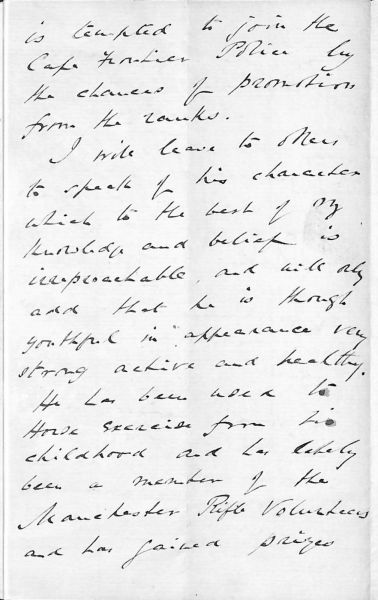 is tempted to join the
Cape Frontier Police by
the chances of promotion
from the ranks.
I will leave to others
to speak of his character
which to the best of my
knowledge and belief is
irreproachable, and will only
add that he is though
youthful in appearance very
strong active and healthy.
He has been used to
Horse exercise from his
childhood and has lately
been a member of the
Manchester Rifle Volunteers
and has gained prizes